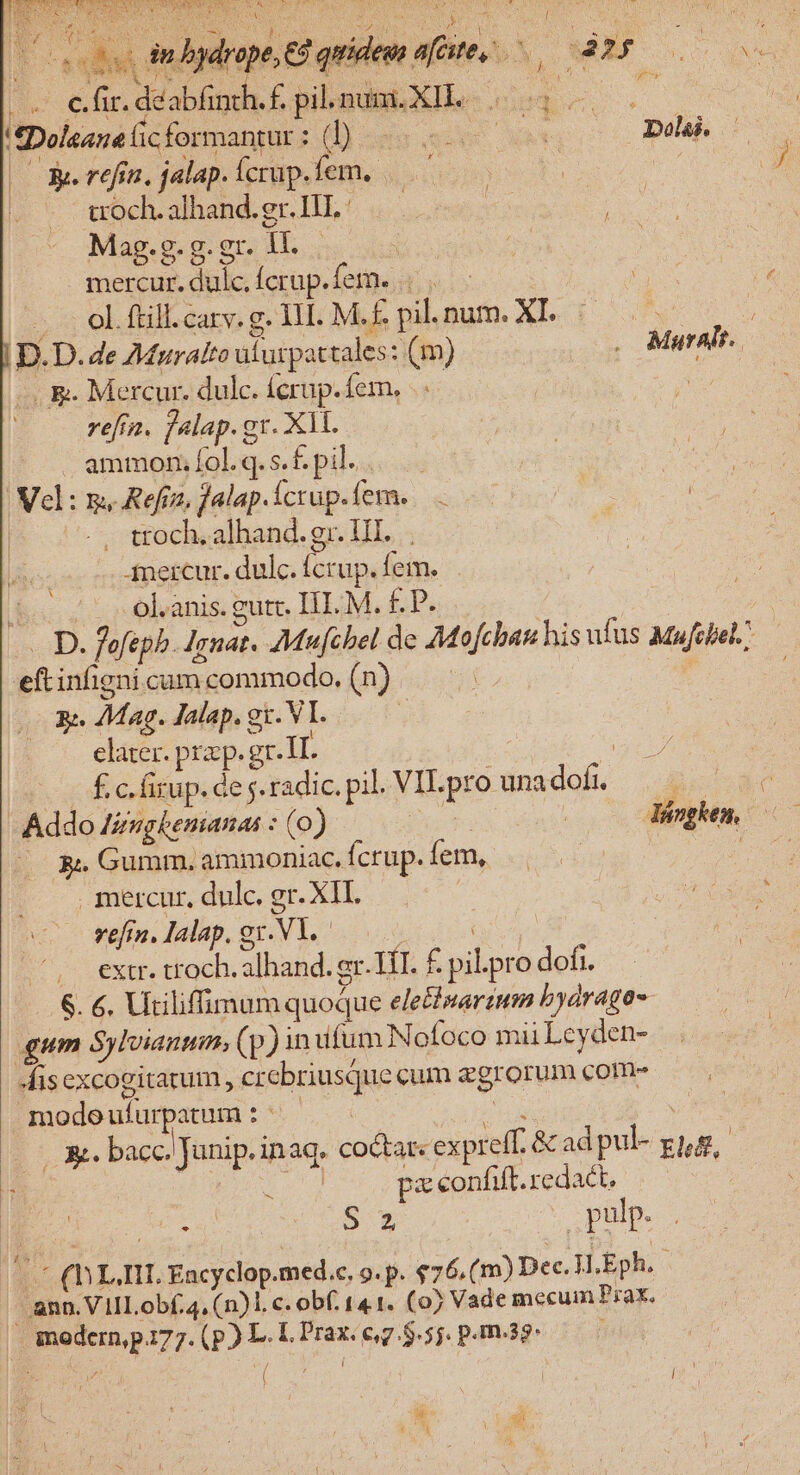 in hydrope, & quidem aſcite, 275
c. ſir. de abſinth. f. pil. num. XII.
Dolæanæ ſic formantur : (l) Dolæi.
℞. reſin. jalap. ſcrup. ſem.
troch. alhand. gr. III.
Mag. g. g. gr. II.
mercur. dulc. ſcrup. ſem.
ol. ſtill. carv. g. III. M. f. pil. num. XI.
D.D. de Muralto uſurpat tales: (m) Muralt.
℞. Mercur. dulc. ſcrup. ſem.
reſin. Jalap. gr. XII.
ammon. ſol. q. s. f. pil.
Vel: ℞. Reſin. Jalap. ſcrup. ſem.
troch. alhand. gr. III.
mercur. dulc. ſcrup. ſem.
ol. anis. gutt. III. M. f. P.
D. Joſeph. Ignat. Muſchel de Moſchau his uſus Muſchel.
eſt inſigni cum commodo. (n)
℞. Mag. Jalap. gr. VI.
elater. præp. gr. II.
f. c. ſirup. de 5. radic. pil. VII. pro una doſi.
Addo Jüngkenianas : (o) Jüngken.
℞. Gumm. ammoniac. ſcrup. ſem.
mercur. dulc. gr. XII.
reſin. Jalap. gr. VI.
extr. troch. alhand. gr. III. f. pil. pro doſi.
§. 6. Utiliſſimum quoque electuarium hydrago-
gum Sylvianum, (p) in uſum Noſocomii Leyden-
ſis excogitatum, crebriusque cum ægrorum com-
modo uſurpatum :
℞. bacc. Junip. in aq. coctar. expreſſ. & ad pul-
pæ conſiſt. redact.
S 2 pulp.
(l) L. III. Encyclop. med. c. 9. p. 576. (m) Dec. II. Eph.
ann. VIII. obſ. 4. (n) l. c. obſ. 141. (o) Vade mecum Prax.
modern. p. 177. (p) L. I. Prax. c. 7. §. 55. p. m. 39.